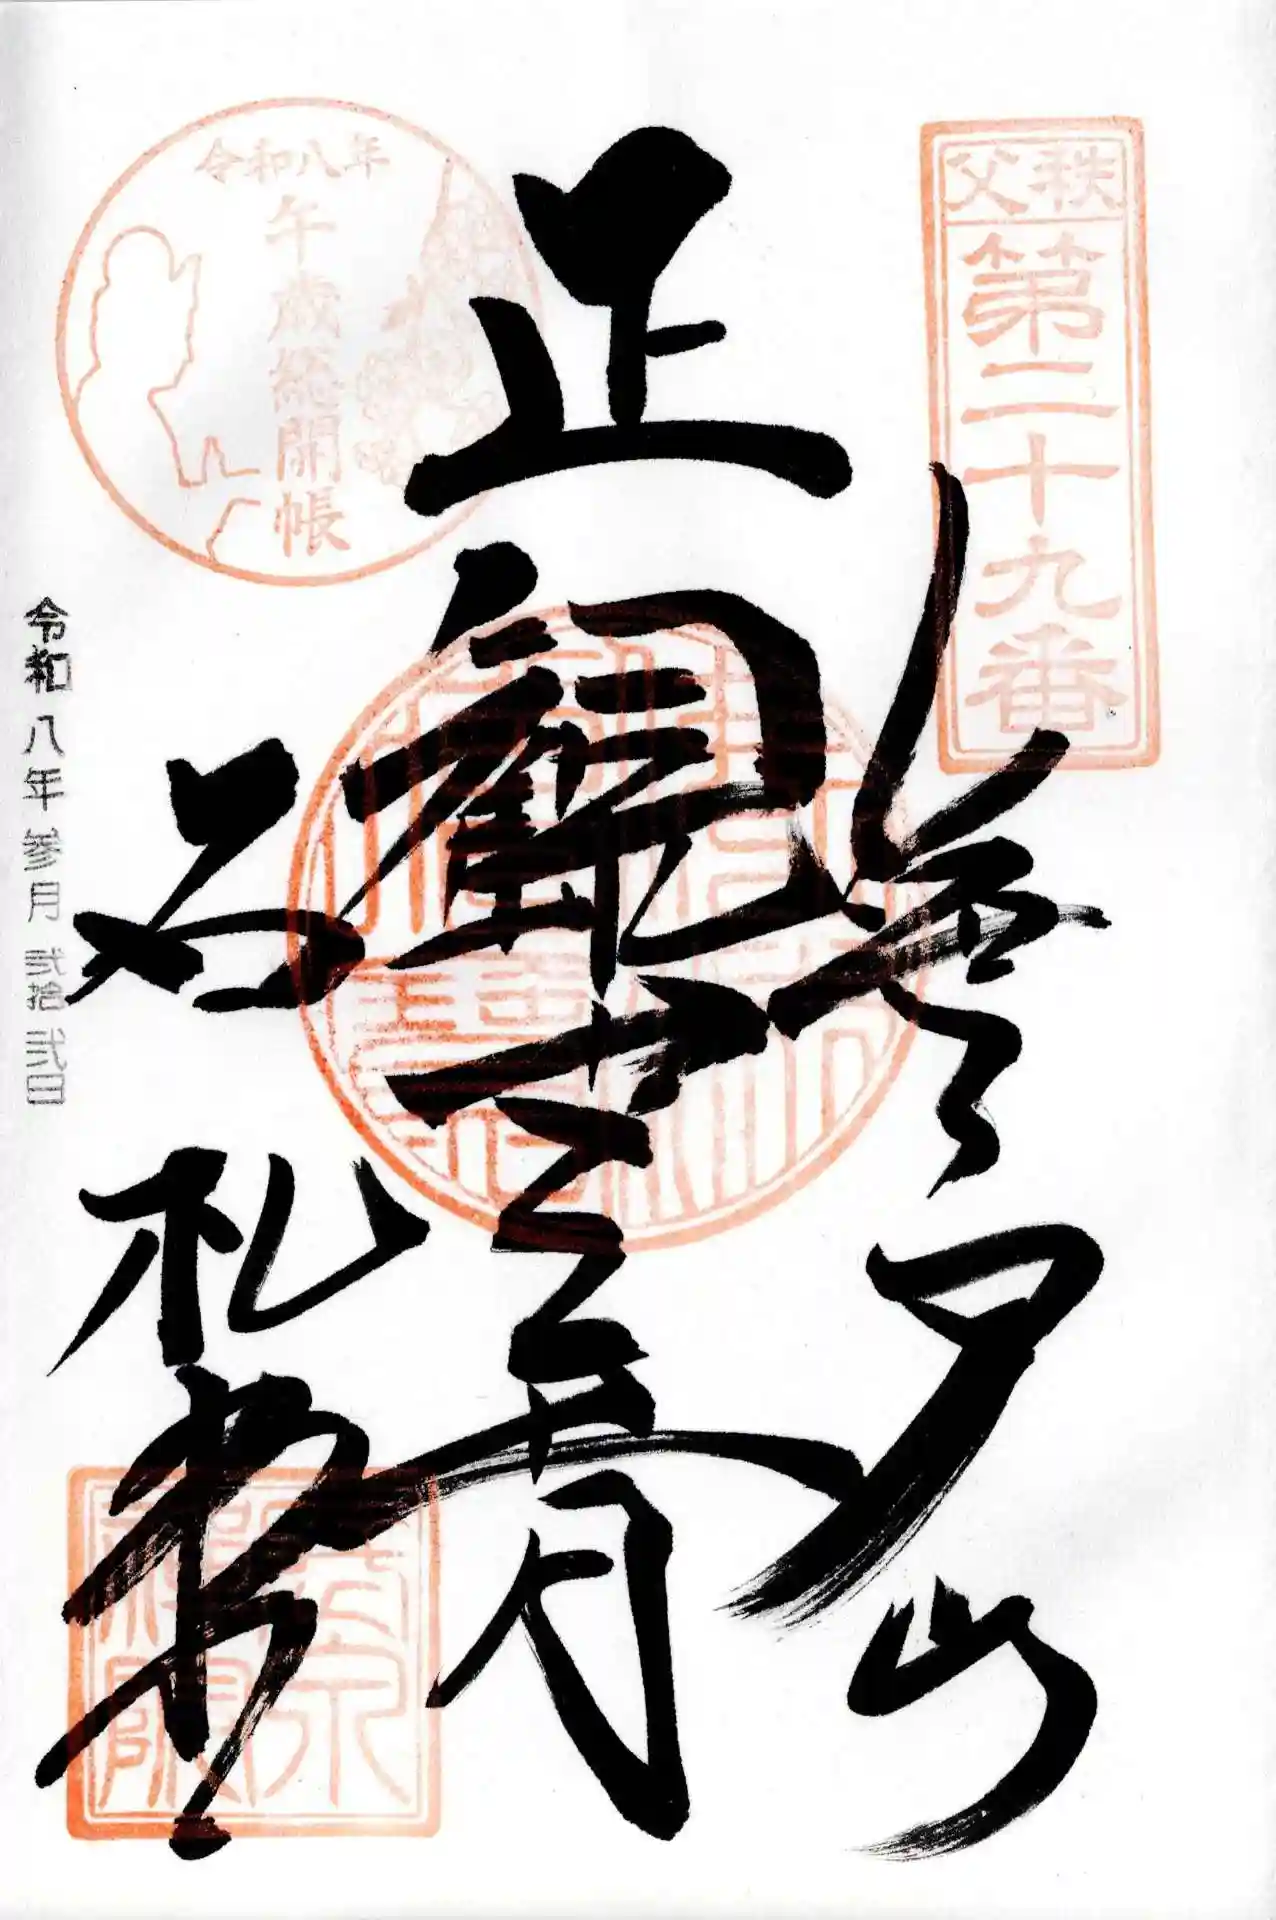 秩父
第二十九番
笹戸山
正観世音
石札堂
令和八年
午歳総開帳
令和八年参月弐拾弐日